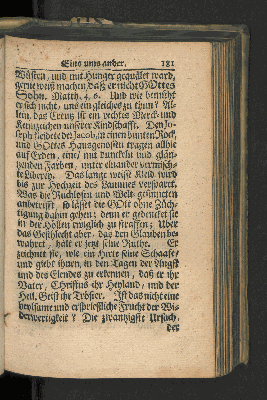 Eins ums ander. 181
Wüsten, und mit Hunger gequälet ward,
gerne weiß machen daß er nicht GOttes
Sohn. Matth. 4, 6. Und wie bemühet
er sich nicht, uns ein gleiches zu thun? Al-
lein, das Creutz ist ein rechtes Merck- und
Kennzeichen unserer Kindschafft. Den Jo-
seph kleidete der Jacob in einen bunten Rock,
und GOttes Hausgenossen tragen allhie
auf Erden, eine mit dunckeln und gläu-
tzenden Farben, unter einander vermisch-
te Liberey. Das lange weisse Kleid wird
bis zur Hochzeit des Lammes versparet.
Was die Ruchlosen und Welt-gesinneten
anbetrifft, so lässet die GOtt ohne Züch-
tigung dahin gehen; denn er gedencket sie
in der Höllen ewiglich zu straffen; Uber
das Geschlecht aber, das den Glauben be-
wahret, hält er jetzt seine Ruthe. Er
zeichnet sie, wie ein Hirte seine Schaafe,
und giebt ihnen, in den Tagen der Angst
und des Elendes zu erkennen, daß er ihr
Vater, Christus ihr Heyland, und der
Heil. Geist ihr Tröster. Ist das nicht eine
heylsame und ersprießliche Frucht der Wi-
derwertigkeit? Die zwantzigste Ursach,
der